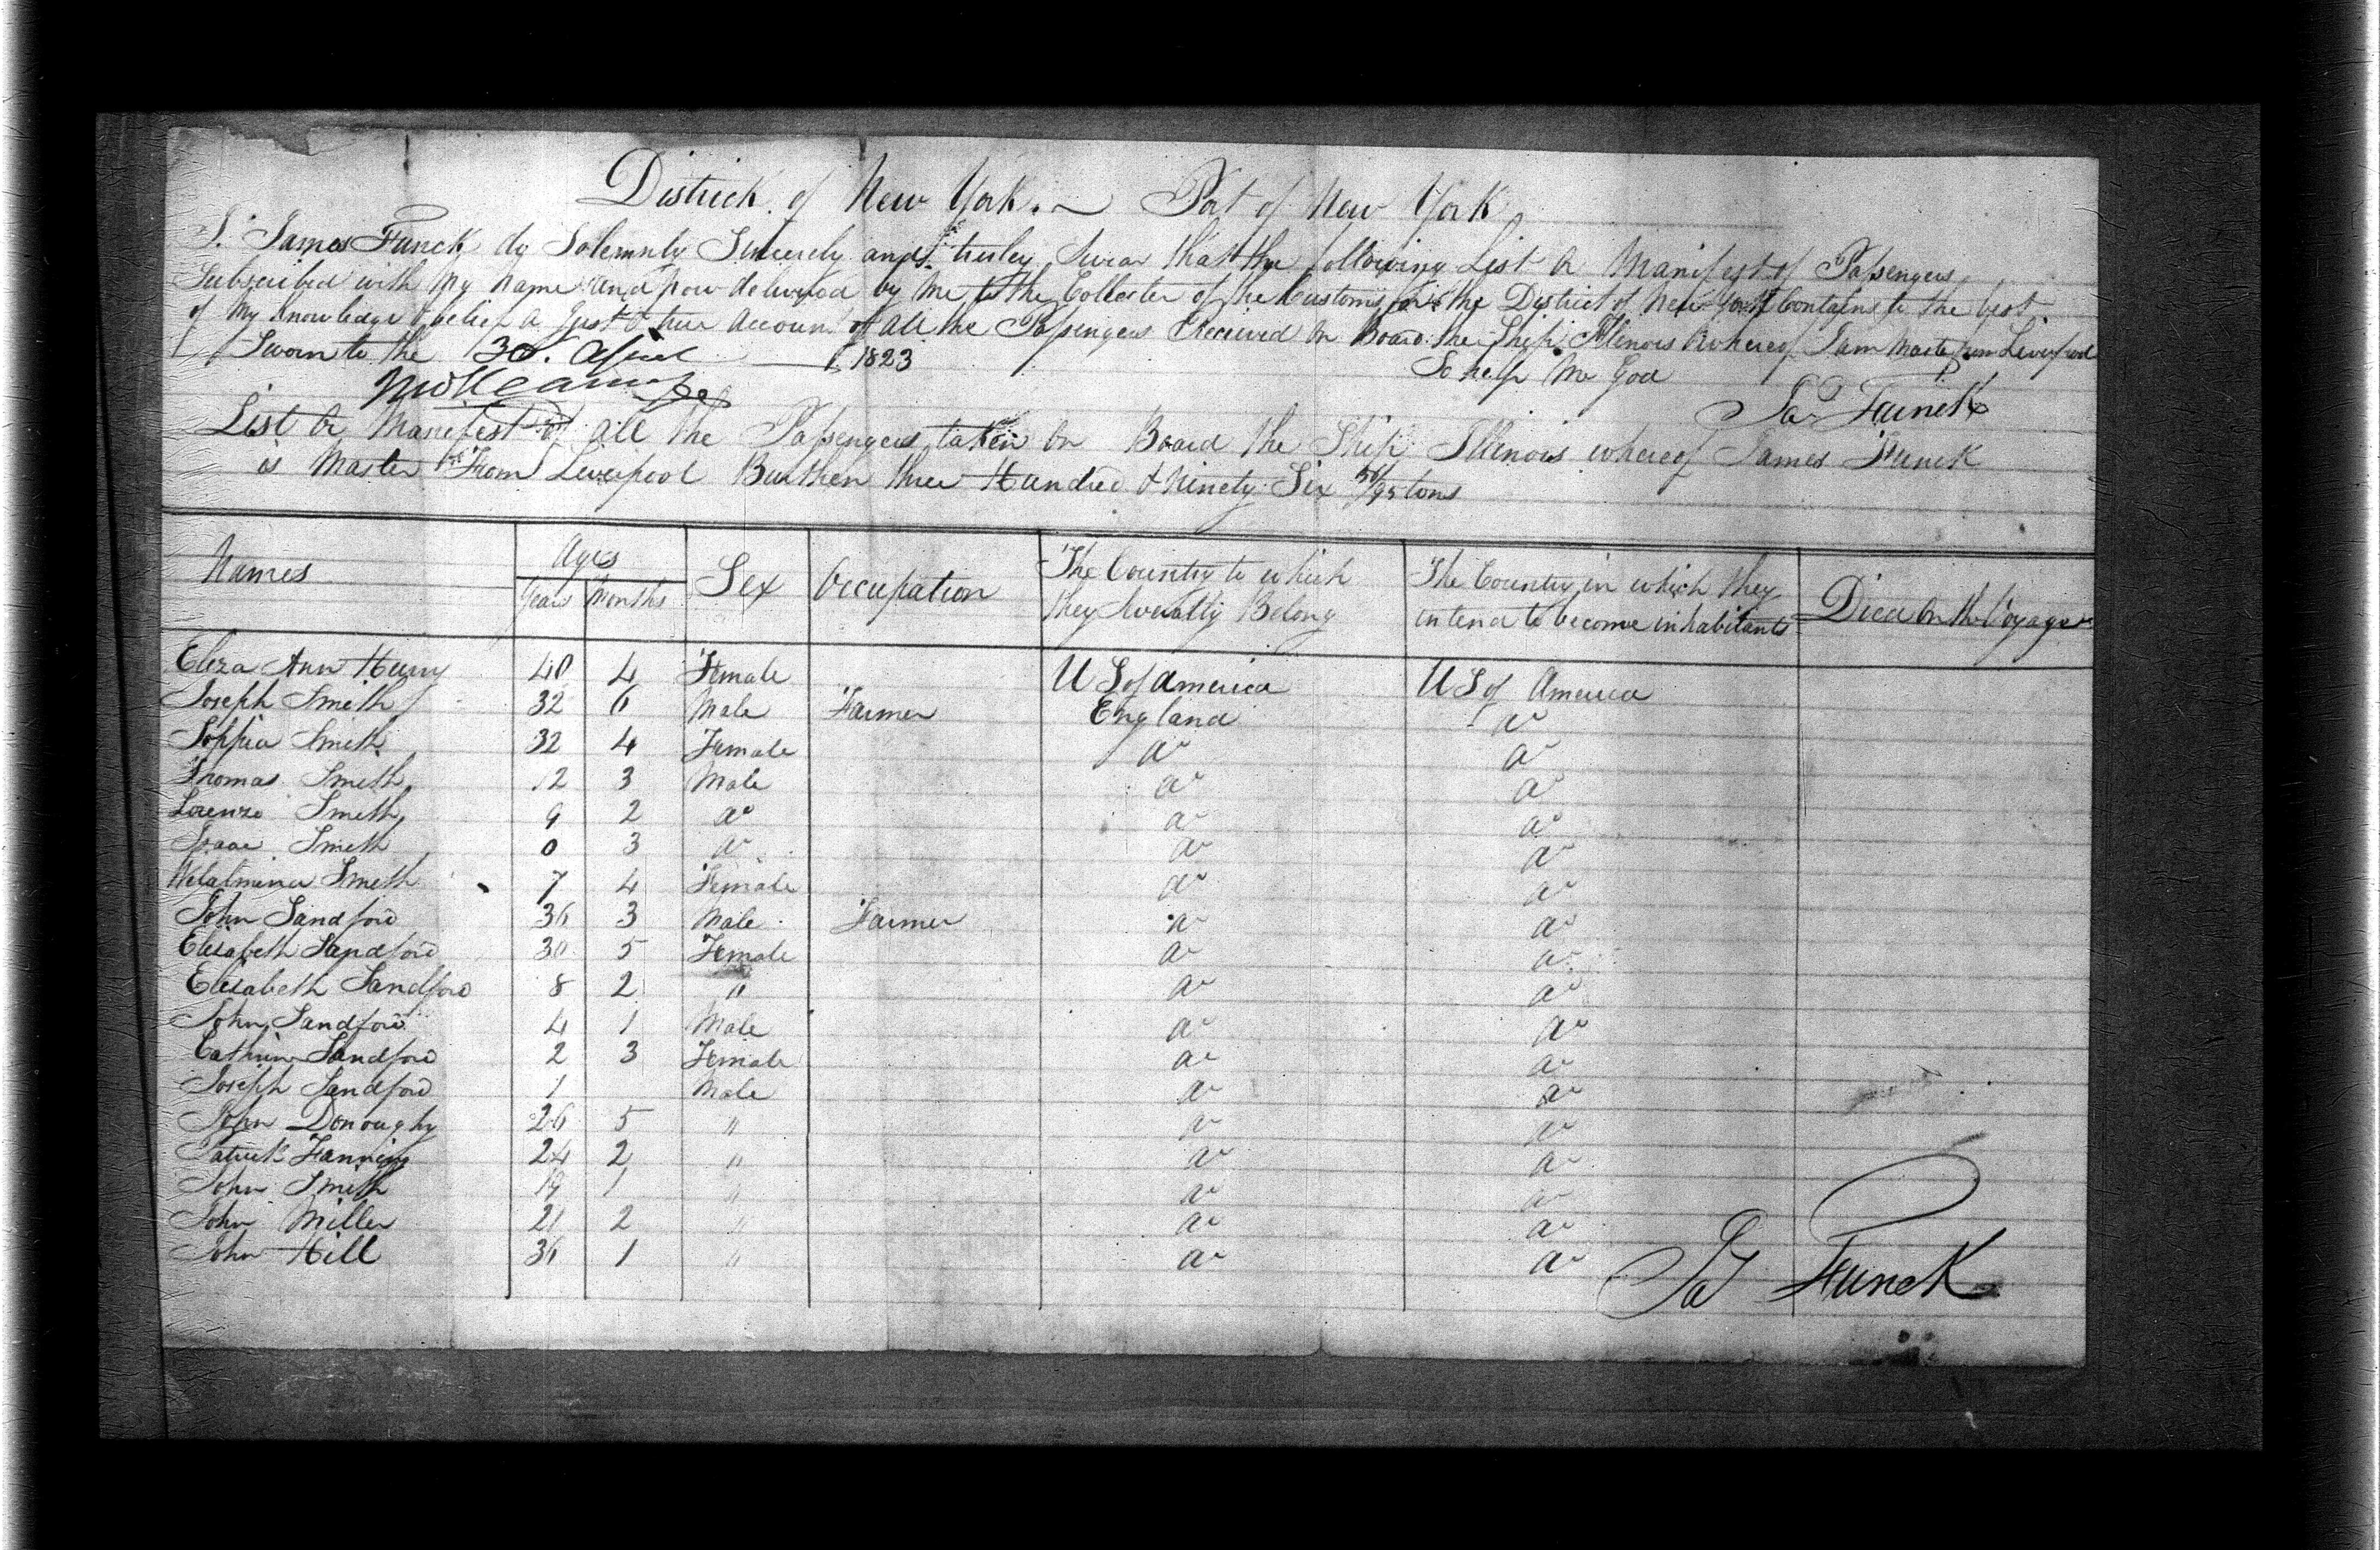 District of New York. ~ Port of New York
I. James Funck do Solemnly Sincerely and truley Swear that the following List or Manifest of Passengers
Subscribed with my name and now delivered by me to the Collecter of the Customs for the District of New York Contains to the best
of my Knowledge & belief a Just & true Account of all the Passengers Received on Board the Ship Illinois whereof I am Master from Liverpool
Sworn to the 30. April 1823 So help me God
Jas Funck
List or Manifest of all the Passengers taken on Board the Ship Illinois whereof James Funck
is Master From Liverpool Burthen three Hundred & Ninety Six /95 tons
Names Ages Years Months Sex Occupation The Country to which they Severally Belong The Country in which they intend to become inhabitants Died on the Voyage
Eliza Ann Henry 40 4 Female U S of America U S of America
Joseph Smith 32 6 Male Farmer England do
Sophia Smith 32 4 Female do do
Thomas Smith 12 3 Male do do
Lorenzo Smith 9 2 do do do
Isaac Smith 0 3 do do do
Wilalmina Smith 7 4 Female do do
John Sandford 36 3 Male Farmer do do
Elisabeth Sandford 30 5 Female do do
Elisabeth Sandford 8 2 " do do
John Sandford 4 1 Male do do
Cathrin Sandford 2 3 Female do do
Joseph Sandford 1 Male do do
John Donoughy 26 5 " do do
Patrick Fanning 24 2 " do do
John Smith 19 1 " do do
John Miller 21 2 " do do
John Hill 36 1 " do do
Jas Funck